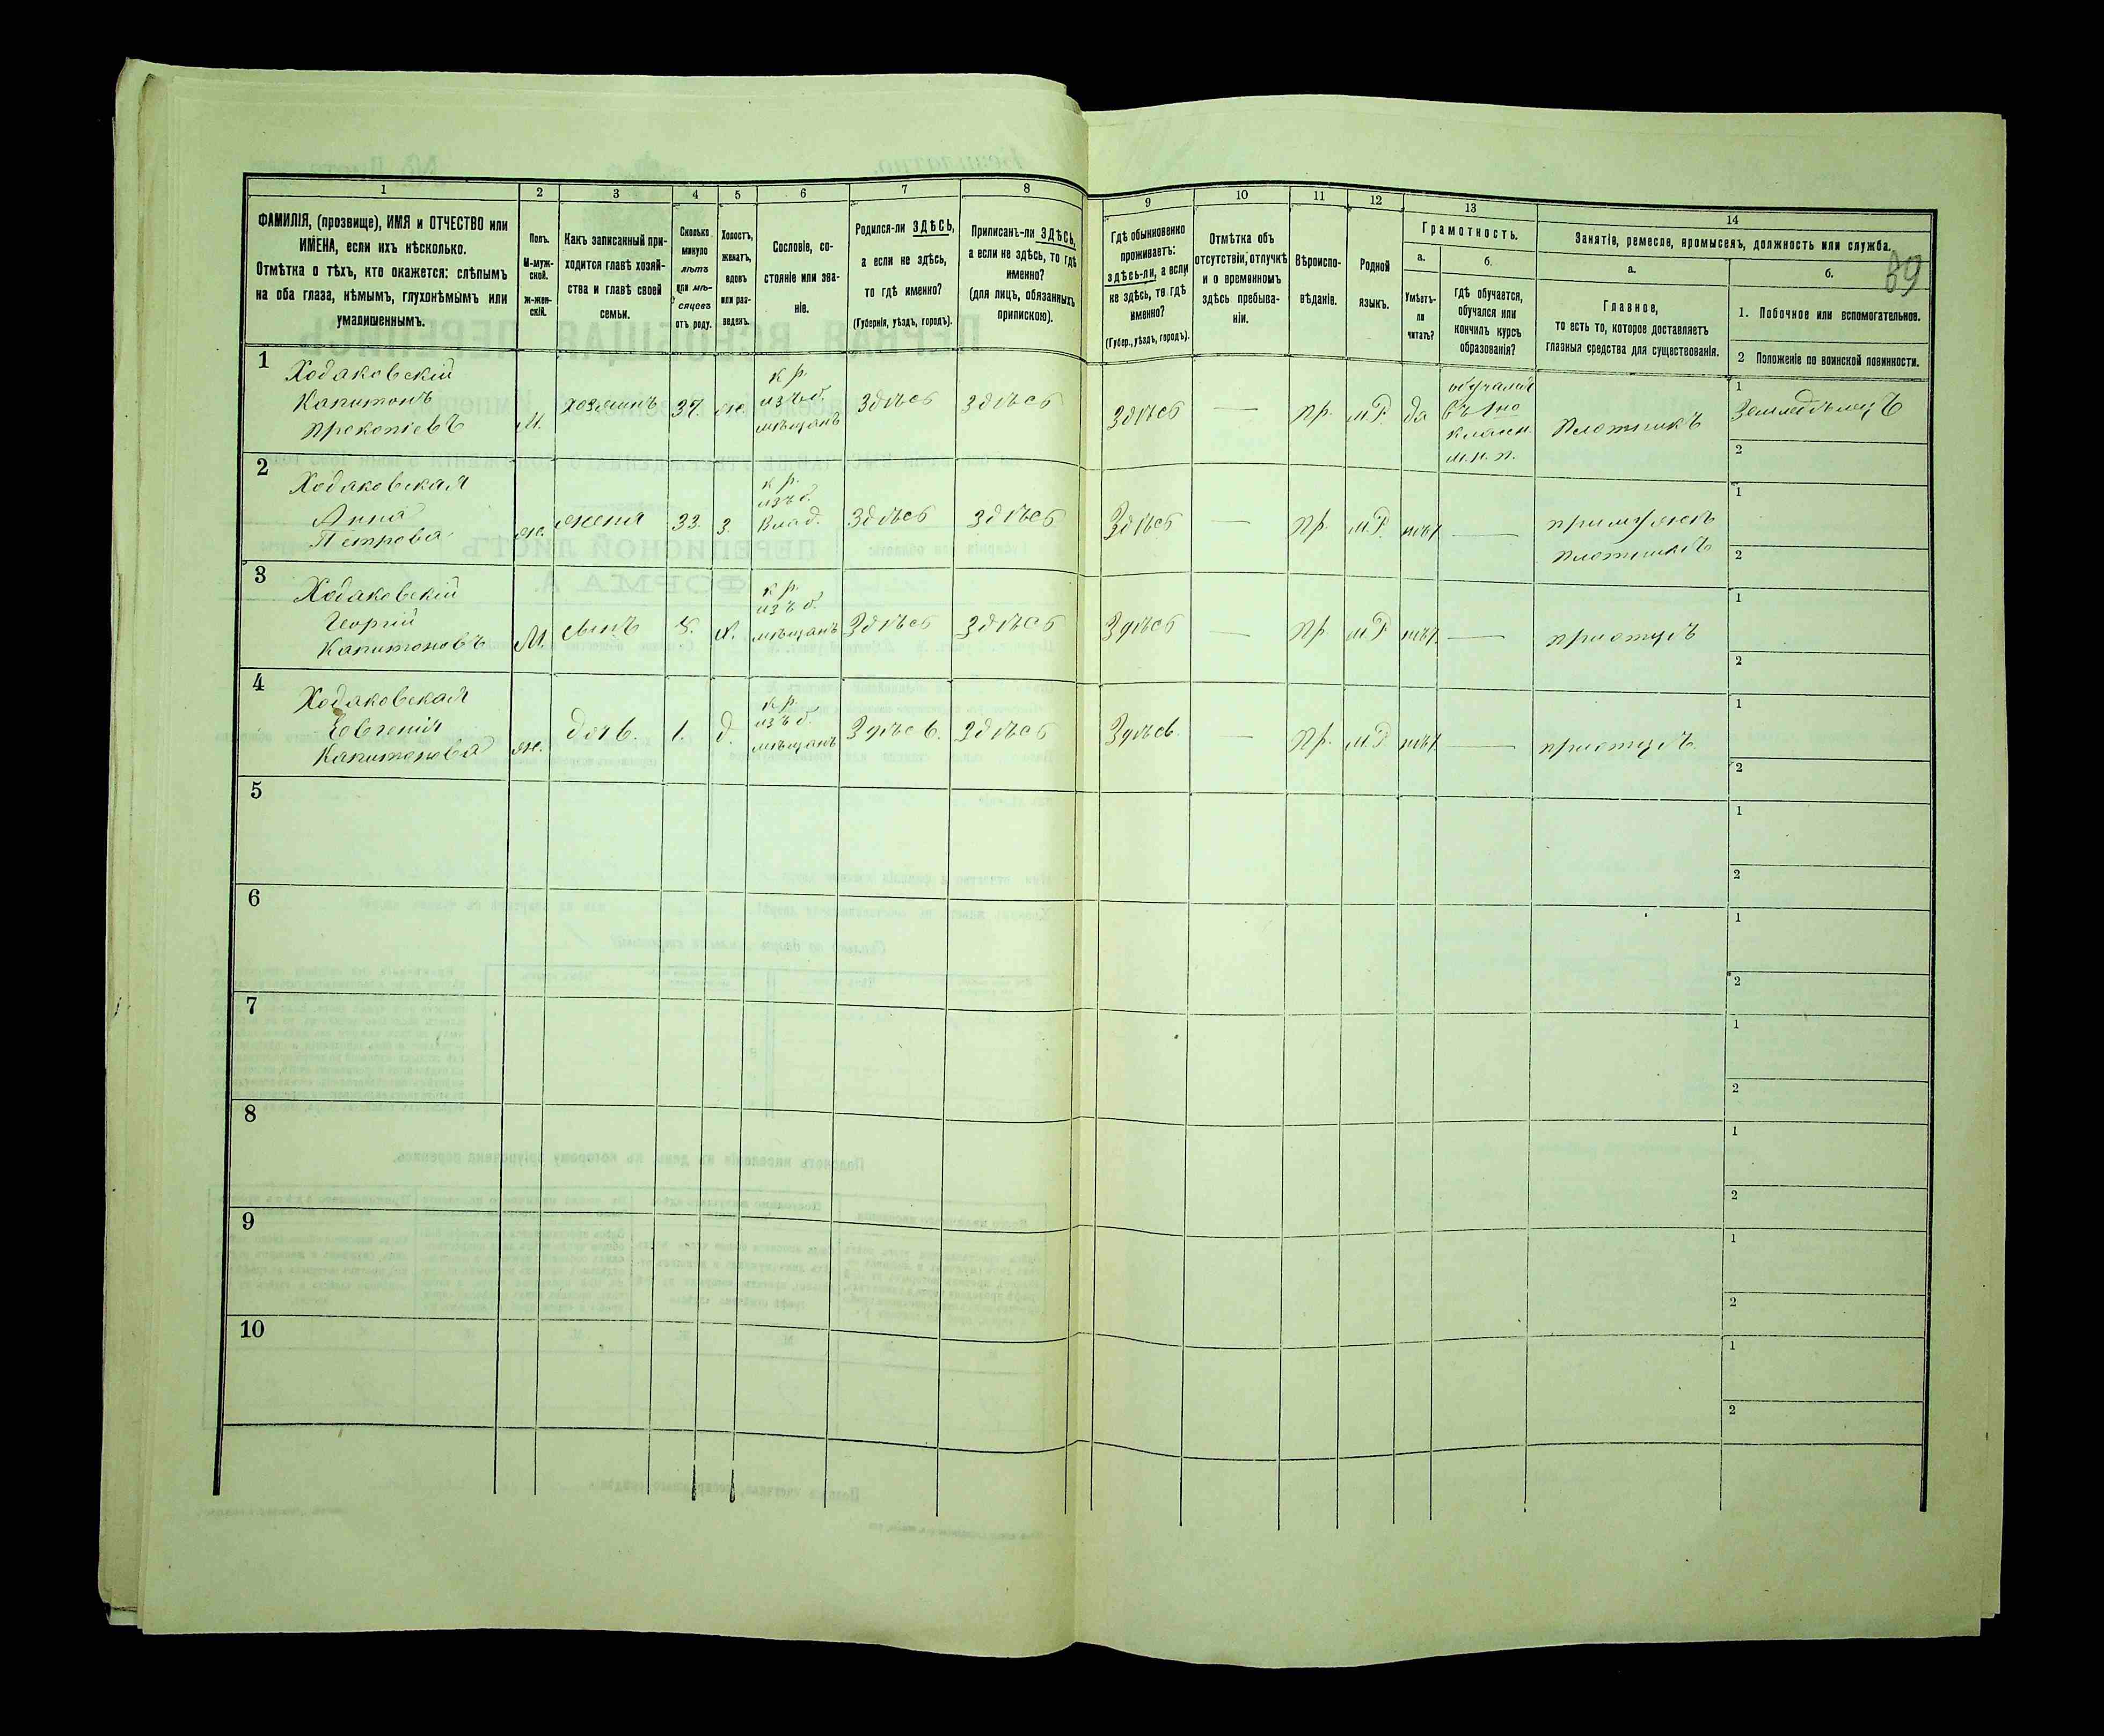 1 2 3 4 5 6 7 8 9 10 11 12 13 14
ФАМИЛІЯ, (прозвище), ИМЯ и ОТЧЕСТВО или
ИМЕНА, если ихъ нѣсколько.
Отмѣтка о тѣхъ, кто окажется: слѣпымъ
на оба глаза, нѣмымъ, глухонѣмымъ или
умалишеннымъ.
Полъ.
М-муж-
ской.
ж-жен-
скій.
Какъ записанный при-
ходится главѣ хозяй-
ства и главѣ своей
семьи.
Сколько
минуло
лѣтъ
или мѣ-
сяцевъ
отъ роду.
Холостъ,
женатъ,
вдовъ
или раз-
веденъ.
Сословіе, со-
стояніе или зва-
ніе.
Родился-ли ЗДѢСЬ,
а если не здѣсь,
то гдѣ именно?
(Губернія, уѣздъ, городъ).
Приписанъ-ли ЗДѢСЬ,
а если не здѣсь, то гдѣ
именно?
(для лицъ, обязанныхъ
припискою).
Гдѣ обыкновенно
проживаетъ:
здѣсь-ли, а если
не здѣсь, то гдѣ
именно?
(Губер., уѣздъ, городъ).
Отмѣтка объ
отсутствіи, отлучкѣ
и о временномъ
здѣсь пребыва-
ніи.
Вѣроиспо-
вѣданіе.
Родной
языкъ.
Грамотность.
а.
Умѣетъ-
ли
читать?
б.
гдѣ обучается,
обучался или
кончилъ курсъ
образованія?
Занятіе, ремесло, промыселъ, должность или служба.
89
а.
Главное,
то есть то, которое доставляетъ
главныя средства для существованія.
б.
1. Побочное или вспомогательное.
2 Положеніе по воинской повинности.
1
Ходаковскій
Капитонъ
Прокопіевъ
М.
хозяинъ
37.
ж.
кр.
изъ б.
мѣщанъ
Здѣсь
здѣсь
здѣсь
—
пр.
м.Р.
да
обучался
въ 1но
классн.
м.н.п.
Плотникъ
1
Земледѣлецъ
2
2
Ходаковская
Анна
Петрова
ж.
жена
33.
з.
кр.
изъ б.
влад.
Здѣсь
здѣсь
Здѣсь
—
пр.
м.Р.
нѣт
—
при мужѣ
плотникѣ
1
2
3
Ходаковскій
Георгій
Капитоновъ
М.
сынъ
х.
кр.
изъ б.
мѣщанъ
Здѣсь
Здѣсь
Здѣсь
—
пр
м.Р
нѣт
—
при отцѣ
1
2
4
Ходаковская
Евгенія
Капитонова
ж.
дочь.
1.
д.
кр.
изъ б.
мѣщанъ
Здѣсь.
здѣсь
Здѣсь.
—
пр.
м.Р
нѣт
—
при отцѣ.
1
2
5
1
2
6
1
2
7
1
2
8
1
2
9
1
2
10
1
2